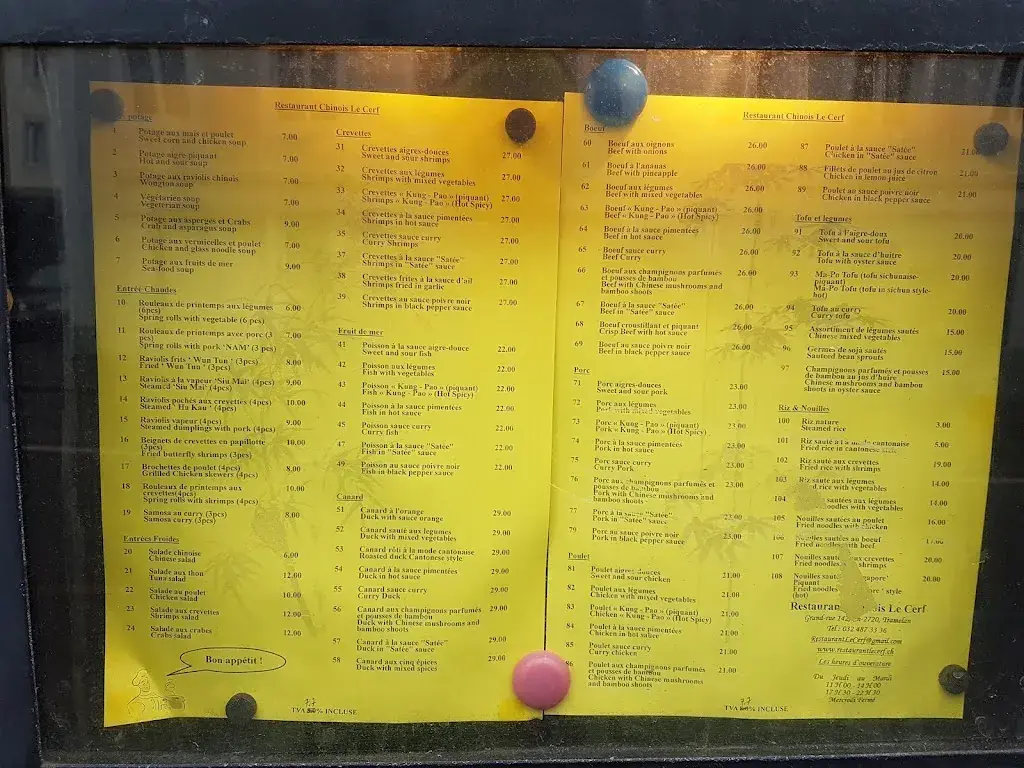 Restaurant Chinois Le Cerf
potage
1 Potage aux maïs et poulet 7.00
Sweet corn and chicken soup
2 Potage aigre piquant 7.00
Hot and sour soup
3 Potage aux raviolis chinois 7.00
Wongton soup
4 Végétarien soup 7.00
Vegeterian soup
5 Potage aux asperges et Crabs 9.00
Crab and asparagus soup
6 Potage aux vermicelles et poulet 7.00
Chicken and glass noodle soup
7 Potage aux fruits de mer 9.00
Sea-food soup
Entrée Chaudes
10 Rouleaux de printemps aux légumes 6.00
(6pcs)
Spring rolls with vegetable (6 pcs)
11 Rouleaux de printemps avec porc (3 7.00
pcs)
Spring rolls with pork 'NAM' (3 pcs)
12 Raviolis frits ' Wun Tun ' (3pcs) 8.00
Fried ' Wun Tun ' (3pcs)
13 Raviolis à la vapeur 'Siu Mai' (4pcs) 9.00
Steamed 'Siu Mai' (4pcs)
14 Raviolis pochés aux crevettes (4pcs) 10.00
Steamed ' Ha Kau ' (4pcs)
15 Ravioli vapeur (4pcs) 9.00
Steamed dumplings with pork (4pcs)
16 Beignets de crevettes en papillotte 10.00
(3pcs)
Fried butterfly shrimps (3pcs)
17 Brochettes de poulet (4pcs) 8.00
Grillded Chicken skewers (4pcs)
18 Rouleaux de printemps aux 10.00
crevettes(4pcs)
Spring rolls with shrimps (4pcs)
19 Samosa au curry (3pcs) 8.00
Samosa curry (3pcs)
Entrées Froides
20 Salade chinoise 6.00
Chinese salad
21 Salade au thon 12.00
Tuna salad
22 Salade au poulet 10.00
Chicken salad
23 Salade aux crevettes 12.00
Shrimps salad
24 Salade aux crabes 12.00
Crabs salad
Bon appétit !
Crevettes
31 Crevettes aigres-douces 27.00
Sweet and sour shrimps
32 Crevettes aux légumes 27.00
Shrimps with mixed vegetables
33 Crevettes « Kung - Pao » (piquant) 27.00
Shrimps « Kung - Pao » (Hot Spicy)
34 Crevettes à la sauce pimentées 27.00
Shrimps in hot sauce
35 Crevettes sauce curry 27.00
Curry Shrimps
37 Crevettes à la sauce "Satée" 27.00
Shrimps in "Satée" sauce
38 Crevettes frites à la sauce d'ail 27.00
Shrimps fried in garlic
39 Crevettes au sauce poivre noir 27.00
Shrimps in black pepper sauce
Fruit de mer
41 Poisson à la sauce aigre-douce 22.00
Sweet and sour fish
42 Poisson aux légumes 22.00
Fish with vegetables
43 Poisson « Kung - Pao » (piquant) 22.00
Fish « Kung - Pao » (Hot Spicy)
44 Poisson à la sauce pimentées 22.00
Fish in hot sauce
45 Poisson sauce curry 22.00
Curry fish
47 Poisson à la sauce "Satée" 22.00
Fish in "Satée" sauce
49 Poisson au sauce poivre noir 22.00
Fish in black pepper sauce
Canard
51 Canard à l'orange 29.00
Duck with sauce orange
52 Canard sauté aux legumes 29.00
Duck with mixed vegetables
53 Canard rôti à la mode cantonaise 29.00
Roasted duck Cantonese style
54 Canard à la sauce pimentées 29.00
Duck in hot sauce
55 Canard sauce curry 29.00
Curry Duck
56 Canard aux champignons parfumés 29.00
et pousses de bambou
Duck with Chinese mushrooms and
bamboo shoots
57 Canard à la sauce "Satée" 29.00
Duck in "Satée" sauce
58 Canard aux cinq épices 29.00
Duck with mixed spices
7.7
TVA % INCLUSE.
Restaurant Chinois Le Cerf
Boeuf
60 Boeuf aux oignons 26.00
Beef with onions
61 Boeuf à l'ananas 26.00
Beef with pineapple
62 Boeuf aux légumes 26.00
Beef with mixed vegetables
63 Boeuf « Kung - Pao » (piquant) 26.00
Beef « Kung - Pao » (Hot Spicy)
64 Boeuf à la sauce pimentées 26.00
Beef in hot sauce
65 Boeuf sauce curry 26.00
Beef Curry
66 Boeuf aux champignons parfumés 26.00
et pousses de bambou
Beef with Chinese mushrooms and
bamboo shoots
67 Boeuf à la sauce "Satée" 26.00
Beef in "Satée" sauce
68 Boeuf croustillant et piquant 26.00
Crisp Beef with hot sauce
69 Boeuf au sauce poivre noir 26.00
Beef in black pepper sauce
Porc
71 Porc aigres-douces 23.00
Sweet and sour pork
72 Porc aux légumes 23.00
Pork with mixed vegetables
73 Porc « Kung - Pao » (piquant) 23.00
Pork « Kung - Pao » (Hot Spicy)
74 Porc à la sauce pimentées 23.00
Pork in hot sauce
75 Porc sauce curry 23.00
Curry Pork
76 Porc aux champignons parfumés et 23.00
pousses de bambou
Pork with Chinese mushrooms and
bamboo shoots
77 Porc à la sauce "Satée" 23.00
Pork in "Satée" sauce
79 Porc au sauce poivre noir 23.00
Pork in black pepper sauce
Poulet
81 Poulet aigres-douces 21.00
Sweet and sour chicken
82 Poulet aux légumes 21.00
Chicken with mixed vegetables
83 Poulet « Kung - Pao » (piquant) 21.00
Chicken « Kung - Pao » (Hot Spicy)
84 Poulet à la sauce pimentées 21.00
Chicken in hot sauce
85 Poulet sauce curry 21.00
Curry chicken
Poulet aux champignons parfumés 21.00
et pousses de bambou
Chicken with Chinese mushrooms
and bamboo shoots
87 Poulet à la sauce "Satée"
Chicken in "Satée" sauce
88 Fillets de poulet au jus de citron 21.00
Chicken in lemon juice
89 Poulet au sauce poivre noir 21.00
Chicken in black pepper sauce
Tofu et légumes
91 Tofu à l'aigre-doux 20.00
Sweet and sour tofu
92 Tofu à la sauce d'huitre 20.00
Tofu with oyster sauce
93 Ma-Po Tofu (tofu sichunaise- 20.00
piquant)
Ma-Po Tofu (tofu in sichun style-
hot)
94 Tofu au curry 20.00
Curry tofu
95 Assortiment de légumes sautés 15.00
Chinese mixed vegetables
96 Germes de soja sautés 15.00
Sauteed bean sprouts
97 Champignons parfumés et pousses 15.00
de bambou au jus d'huitre
Chinese mushrooms and bamboo
shoots in oyster sauce
Riz & Nouilles
100 Riz nature 3.00
Steamed rice
101 Riz sauté à la mode cantonaise 5.00
Fried rice in cantonese style
102 Riz sauté aux crevettes 19.00
Fried rice with shrimps
103 Riz sauté aux légumes 14.00
rice with vegetables
104 sautées aux légumes 14.00
noodles with vegetables
105 Nouilles sautées au poulet 16.00
Fried noodles with chicken
106 Nouilles sautées au boeuf 17.00
Fried noodles with beef
107 Nouilles sautées aux crevettes 20.00
Fried noodles shrimps
108 Nouilles 20.00
Piquant
Fried noodles style
(hot)
Restaurant Chinois Le Cerf
Grand-rue 2720, Tramelan
Tel : 032 487 33 36
RestaurantLeCerf@gmail.com
www.restaurantlecerf.ch
Les heures d'ouverture
Du Jeudi au Mardi
11 H 00 - 14 H 00
17 H 30 - 22 H 30
Mercredi Fermé
7.7
TVA % INCLUSE.